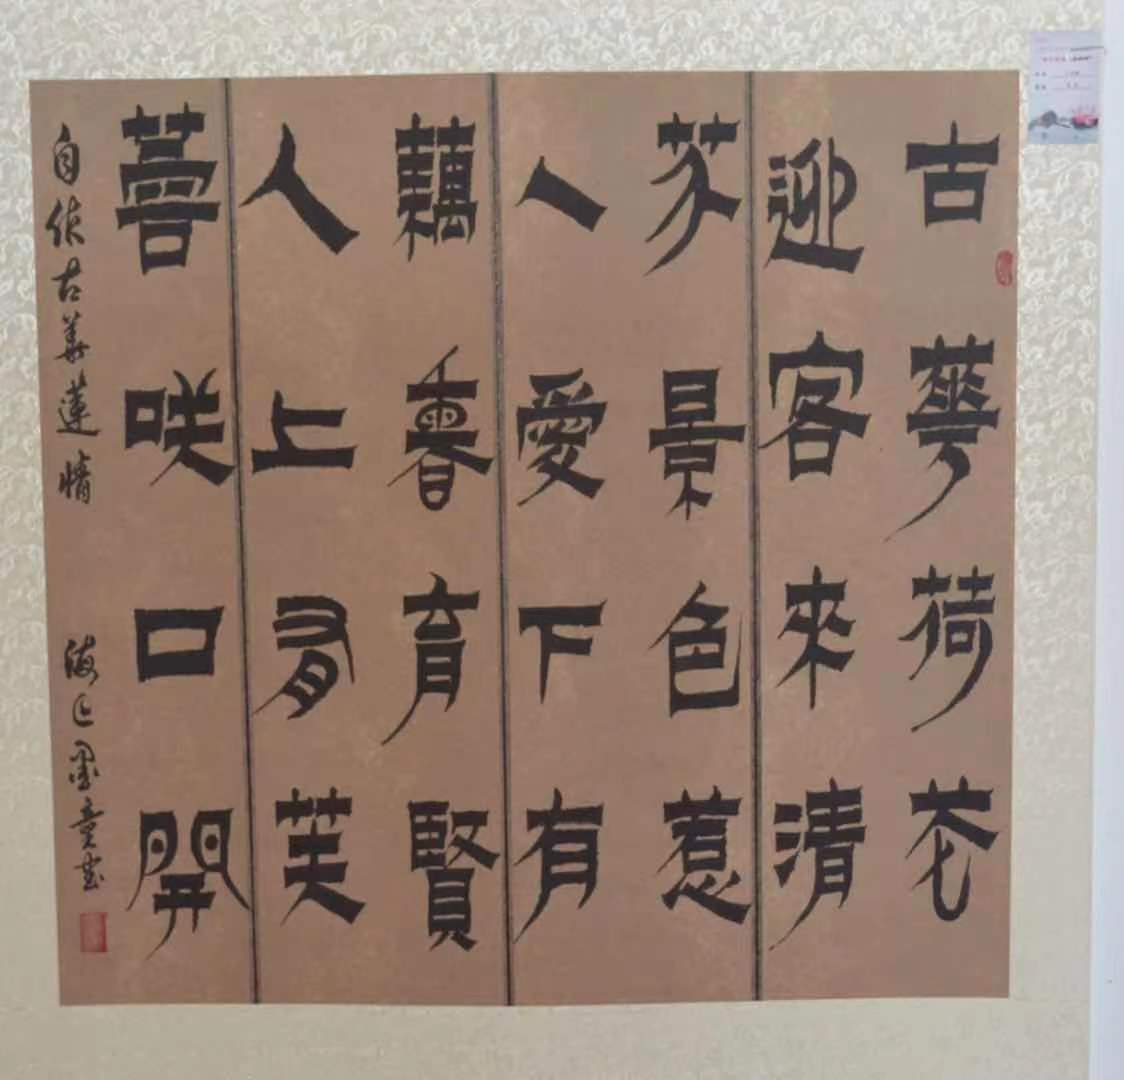 古華荷花
迎客來清
芬景色惹
人愛下有
藕香育賢
人上有芙
蓉咲口開
自作古華蓮情 海上墨童書